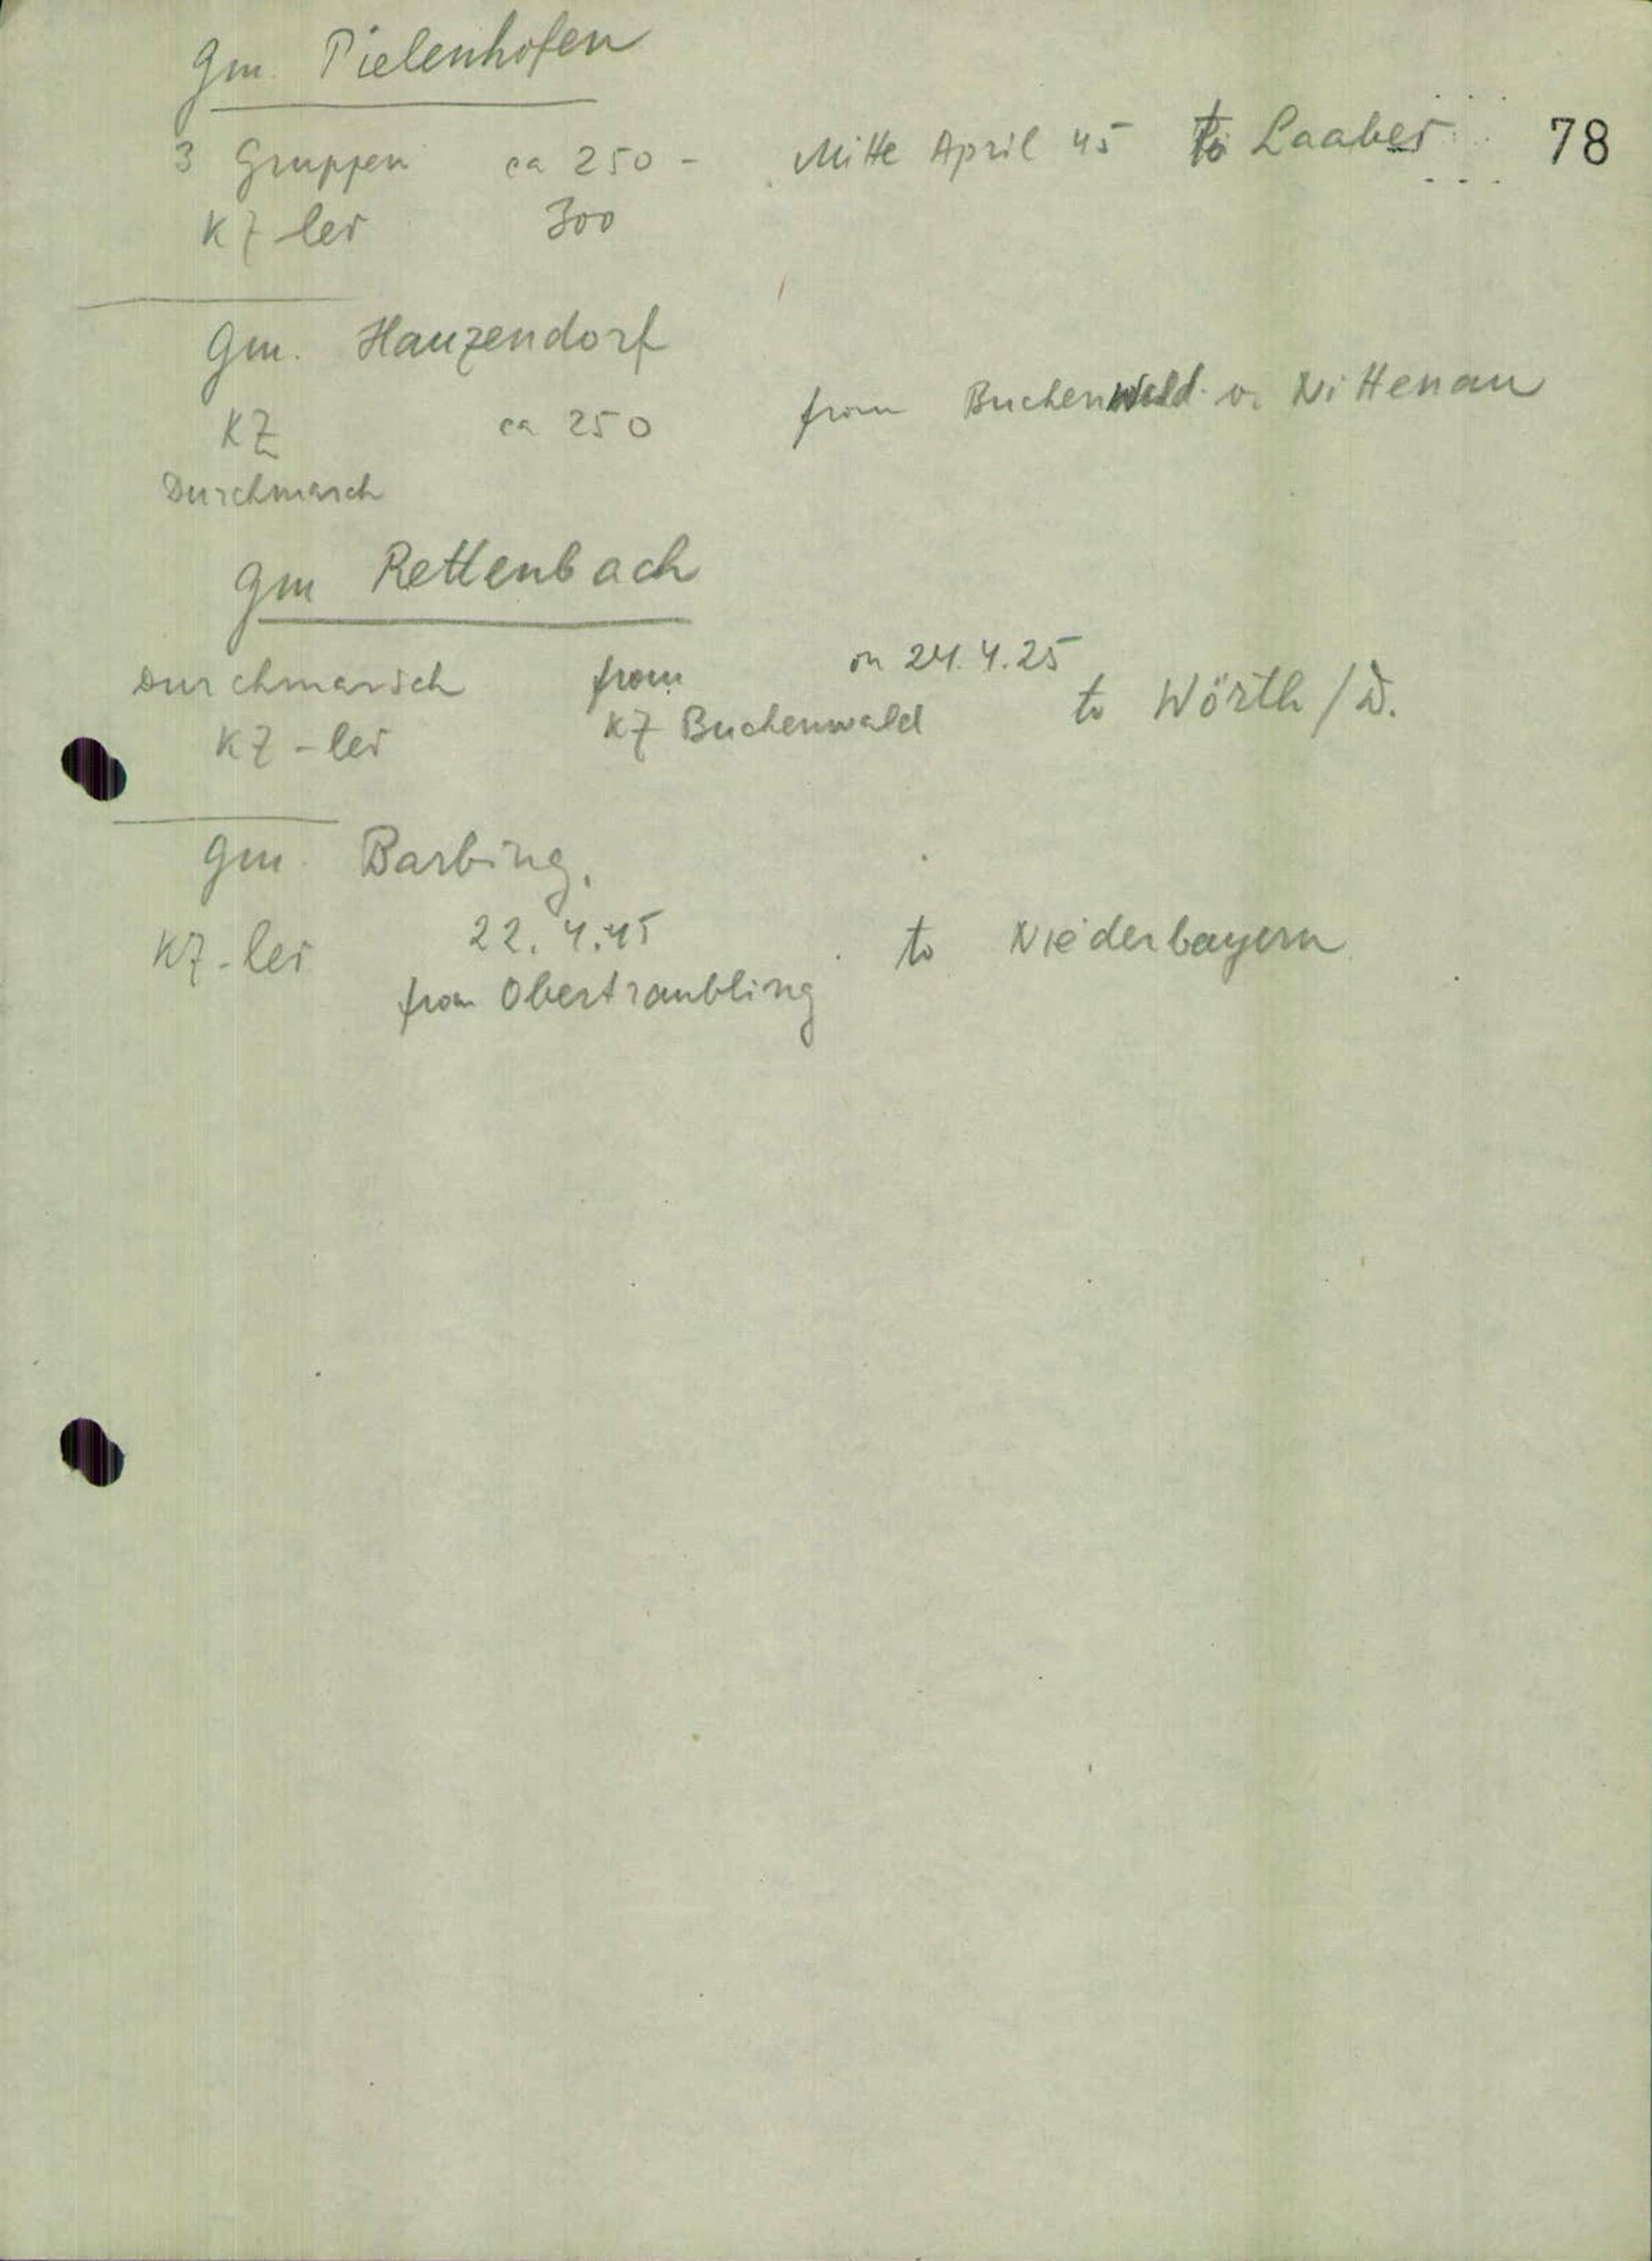 Gm. Pielenhofen
78
3 Gruppen ca 250 - Mitte April 45 to Laaber
KZ-ler 300
Gm. Hauzendorf
KZ ca 250 from Buchenwald v. Nittenau
Durchmarsch
Gm Rettenbach
on 24.4.25
Durchmarsch from to Wörth/D.
KZ-ler KZ Buchenwald
Gm. Barbing.
KZ-ler 22.4.45 to Niederbayern
from Obertraubling